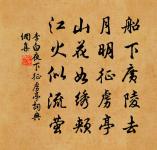 船下廣陵去
月明征虜亭
山花如绣頰
江火似流萤
李白夜下征虜亭詞典
網集